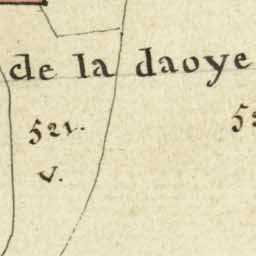 de la daoye
521.
V.